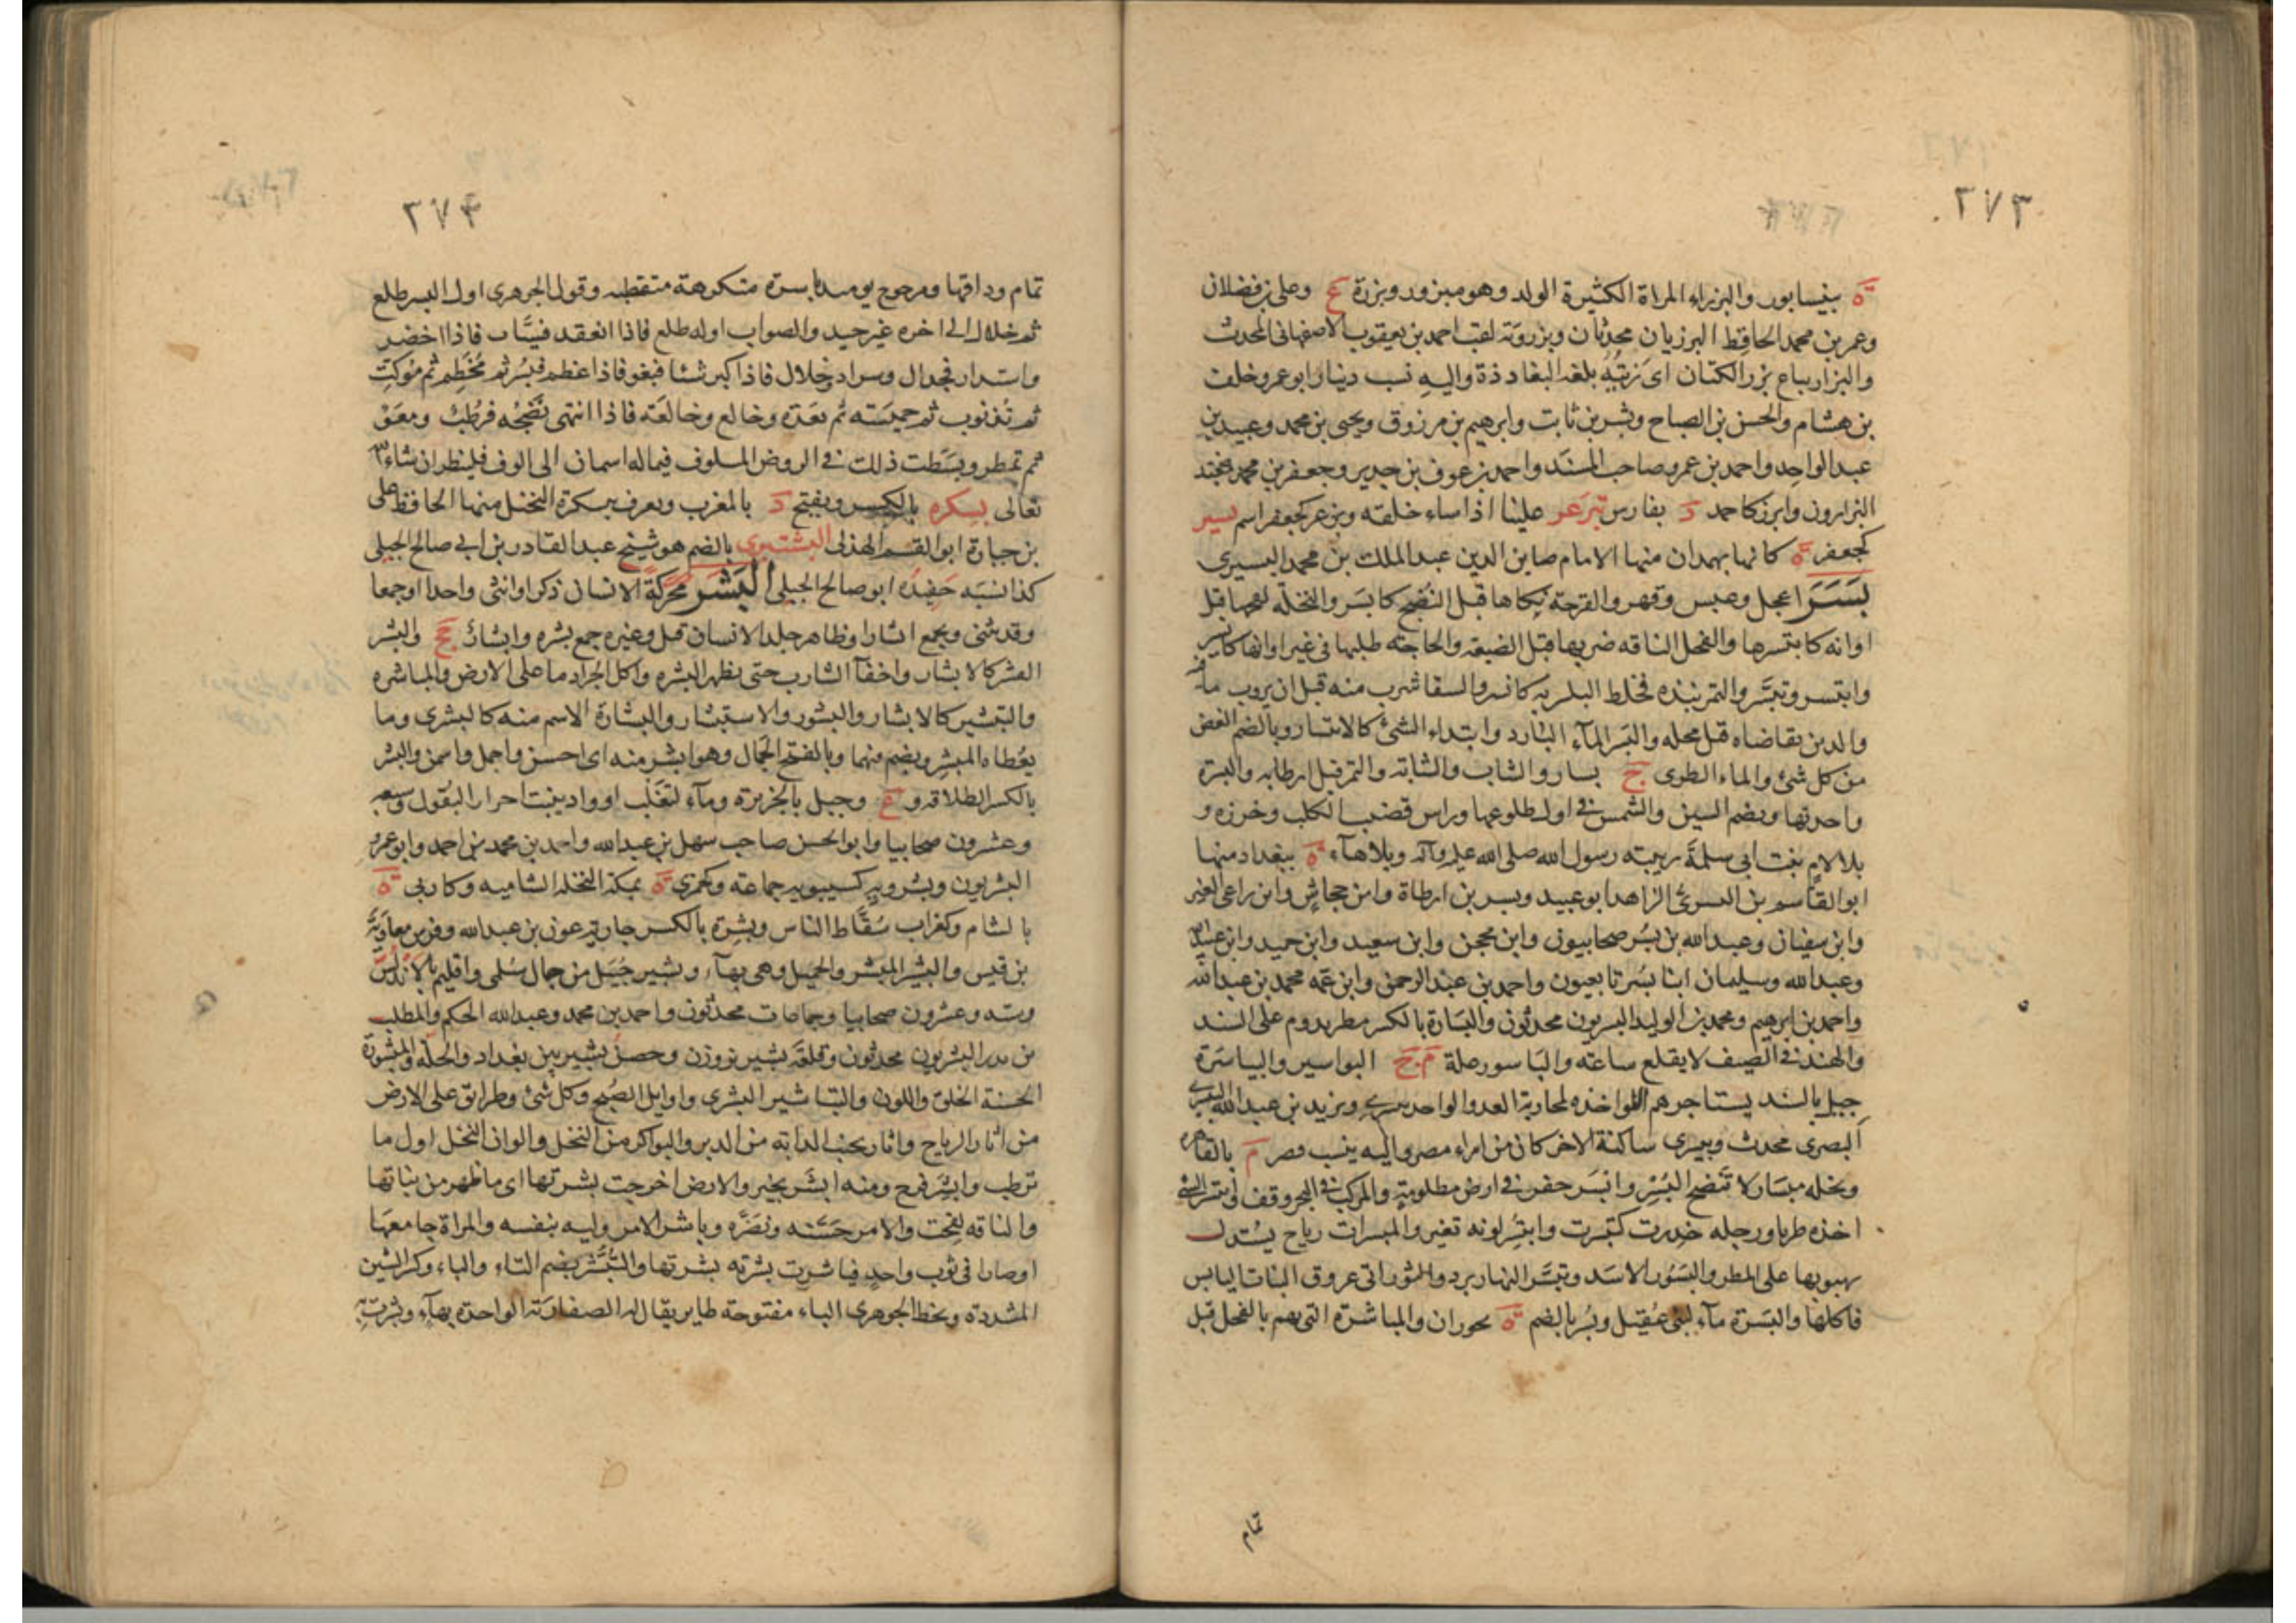 ٢٧٣
ة بنيسابور والبزراء المراة الكثيرة الولد وهو مبزور وبزرة ع وعلى بن فضلان
وعمر بن محمد الحافظ البرزيان محدثان وبزرويه لقب احمد بن يعقوب الاصفهانى المحدث
والبزار بياع بزر الكتان اى زيته بلغة البغاددة واليه نسب دينار ابو عمر وخلف
بن هشام والحسن بن الصباح وبشر بن ثابت وابرهيم بن مرزوق ويحيى بن محمد وعبيد بن
عبد الواحد واحمد بن عمرو صاحب المسند واحمد بن عوف بن جدير وجعفر بن محمد
البزارون وابزر كاحمد د بفارس تبزعر علينا اذا ساء خلقه وبزعر كجعفر اسم بسير
كجعفر ة كانها بهمدان منها الامام صاين الدين عبد الملك بن محمد البسيرى
بسر اعجل وعبس وقهر والقرحة نكاها قبل النضج كابسر والنخلة لقحها قبل
اوانه كابتسرها والفحل الناقه ضربها قبل الضبعة والحاجة طلبها فى غير اوانها كابسر
وابتسر وتبسر والتمر نبذه فخلط البسر به كابسر والسقا شرب منه قبل ان يروب ما فيه
والدين تقاضاه قبل محله والبسر الماء البارد وابتداء الشئ كالابتسار وبالضم الغض
من كل شئ والماء الطرى ج بسار والشاب والشابة والتمر قبل ارطابه والبسرة
واحدتها وبضم السين والشمس فى اول طلوعها وراس قضيب الكلب وخرزه و
بلا لام بنت ابى سلمة ربيبته رسول الله صلى الله عليه وآله وبلا هاء ة ببغداد منها
ابو القاسم بن البسرى الزاهد ابو عبيد وبسر بن ارطاة وابن جحاش وابن راعى العير
وابن سفيان وعبد الله بن بسر صحابيون وابن محجن وابن سعيد وابن حميد وابن عبيد الله
وعبد الله وسليمان ابنا بسر تابعيون واحمد بن عبد الرحمن وابن عمه محمد بن عبد الله
واحمد بن ابرهيم ومحمد بن الوليد البسريون محدثون والبسارة بالكسر مطر يدوم على السند
والهند فى الصيف لا يقلع ساعة والباسور علة م ج البواسير والبياسرة
جيل بالسند يستاجرهم النواخذة لمحاربة العدو الواحد بيسرى ويزيد بن عبد الله البيسرى
البصرى محدث وبيسرى ساكنة الاخر كان من امراء مصر واليه ينسب قصر م بالقاهرة
ونخلة مبسار لا تنضج البسر وابسر حفر فى ارض مظلومة والمركب فى البحر وقف وابتسر الشئ
اخذه طريا ورجله خدرت كتبسرت وابتسر لونه تغير والمبسرات رياح يستدل
بهبوبها على المطر والبسور الاسد وتبسر النهار برد والثور اتى عروق النبات اليابس
فاكلها والبسرة ماء لبنى عقيل وبسر بالضم ة بحوران والمباسرة التى تهم بالفحل قبل
تمام
٢٧٤
تمام وداقها ووجوه يومئذ باسرة متكرهة متقطبة وقول الجوهرى اول البسر طلع
ثم خلال الى اخره غير جيد والصواب اوله طلع فاذا انعقد فسياب فاذا اخضر
واستدار فجدال وسراد وخلال فاذا كبر شيئا فبغو فاذا عظم فبسر ثم مخطم ثم موكت
ثم تذنوب ثم جمسة ثم ثعدة وخالع وخالعة فاذا انتهى نضجه فرطب ومعو
ثم تمر وبسطت ذلك فى الروض المسلوف فيما له اسمان الى الوف فلينظر ان شاء الله
تعالى بسكره بالكسر ويفتح د بالمغرب ويعرف ببسكرة النخل منها الحافظ على
بن جبارة ابو القسم الهذلى البشتيرى بالضم هو شيخ عبد القادر بن ابى صالح الجيلى
كذا نسبه حفيده ابو صالح الجيلى البشر محركة الانسان ذكرا وانثى واحدا وجمعا
وقد يثنى ويجمع ابشارا وظاهر جلد الانسان قيل وغيره جمع بشره وابشار جج والبشر
القشر كالابشار واخفاء الشارب حتى يظهر البشره واكل الجراد ما على الارض والمباشره
والتبشير كالابشار والبشور والاستبشار والبشارة الاسم منه كالبشرى وما
يعطاه المبشر ويضم فيهما وبالفتح الجمال وهو ابشر منه اى احسن واجمل واسمن والبشر
بالكسر الطلاقة و ع وجبل بالجزيرة وماء لتغلب او واد ينبت احرار البقول وسبعه
وعشرون صحابيا وابو الحسن صاحب سهل بن عبد الله واحمد بن محمد بن احمد وابو عمرو
البشريون وبشرويه كسيبويه جماعة وكجمزى ة بمكة النخلة الشاميه وكاربى ة
بالشام وكغراب سقاط الناس وبشرة بالكسر جارية عون بن عبد الله وفرس معاوية
بن قيس والبشير المبشر والجميل وهى بهاء وبشير جبيل من جبال سلمى واقليم بالاندلس
وستة وعشرون صحابيا وجماعات محدثون واحمد بن محمد وعبد الله الحكم والمطلب
بن بدر البشريون محدثون وقلعة بشير بزوزن وحصن بشير بين بغداد والحلة والمبشورة
الحسنة الخلق واللون والتباشير البشرى واوايل الصبح وكل شئ وطرايق على الارض
من اثار الرياح واثار بجنب الدابة من الدبر والبواكر من النخل والوان النخل اول ما
ترطب وابشر فرح ومنه ابشر بخير والارض اخرجت بشرتها اى ما ظهر من نباتها
والناقه لقحت والامر حسنه ونضره وباشر الامر وليه بنفسه والمراة جامعها
او صارا فى ثوب واحد فباشرت بشرته بشرتها والتبشر بضم التاء والباء وكسر الشين
المشددة وبخط الجوهرى الباء مفتوحة طاير يقال له الصفارية الواحدة بهاء وبشرت به